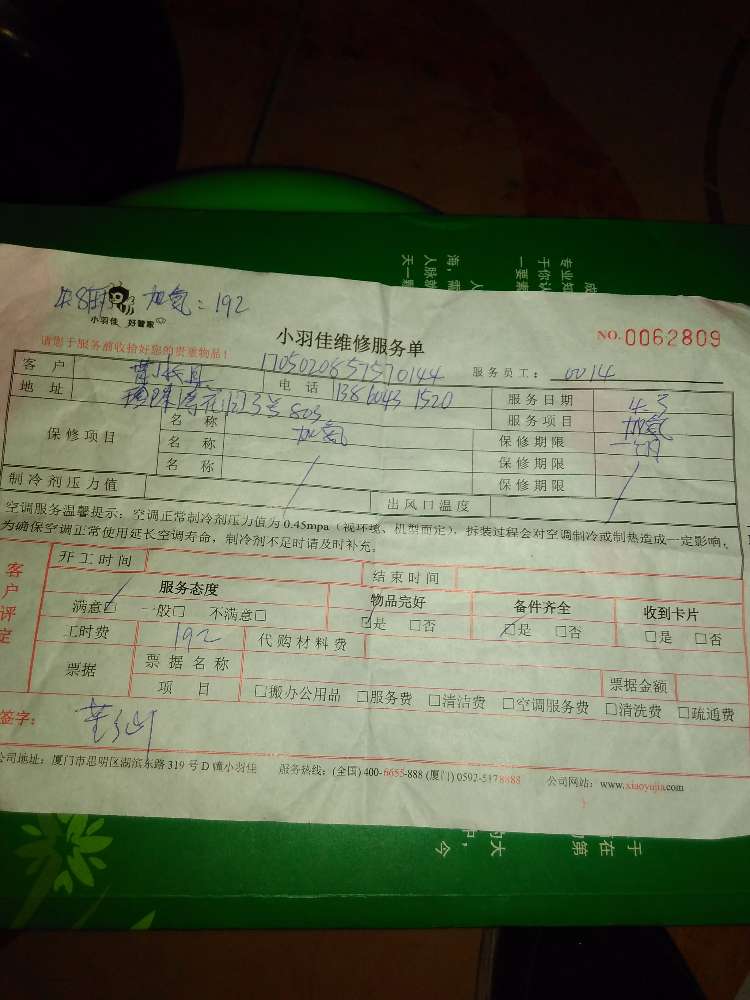 加氨：192
小羽佳 好管家
小羽佳维修服务单
NO. 0062809
请您于服务前收拾好您的贵重物品！
17050208657570144
服务员工： 0014
客户
电话 1386043 1520
服务日期 4.3
地址 123号803
服务项目 加氨
保修项目
名称 加氨
保修期限 一个月
名称
保修期限
名称
保修期限
制冷剂压力值
出风口温度
空调服务温馨提示：空调正常制冷剂压力值为 0.45mpa（视环境、机型而定），拆装过程会对空调制冷或制热造成一定影响，
为确保空调正常使用延长空调寿命，制冷剂不足时请及时补充。
客户评定
开工时间
结束时间
服务态度
物品完好
备件齐全
收到卡片
满意☑ 一般□ 不满意□
☑是 □否
☑是 □否
□是 □否
工时费 192
代购材料费
票据
票据名称
票据金额
项目
□搬办公用品 □服务费 □清洁费 □空调服务费 □清洗费 □疏通费
签字：
公司地址：厦门市思明区湖滨东路 319 号 D 幢小羽佳 服务热线：(全国) 400-6655-888 (厦门) 0592-5178888 公司网站：www.xiaoyujia.com